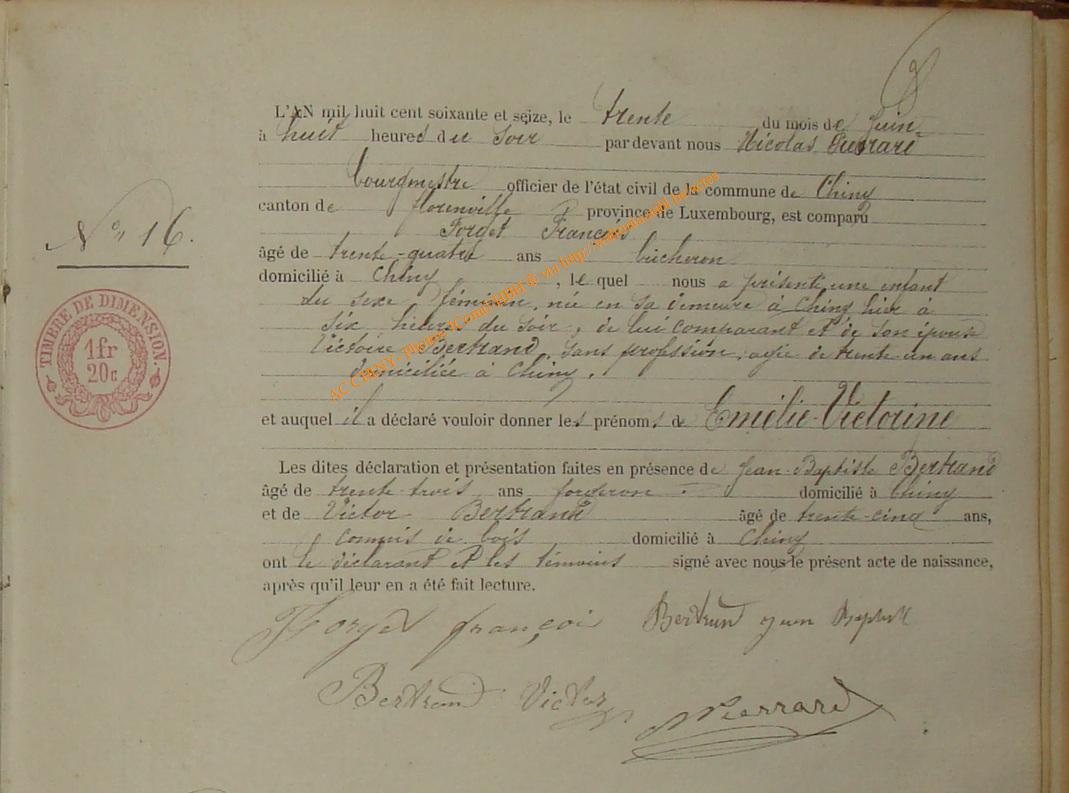 L'AN mil huit cent soixante et seize, le trente du mois de Juin
à huit heures du soir par devant nous Nicolas Pierrard
bourgmestre officier de l'état civil de la commune de Chiny
canton de florenville province de Luxembourg, est comparu
Forget François
âgé de trente-quatre ans bûcheron
domicilié à Chiny, lequel nous a présenté une enfant
du sexe féminin, née en sa demeure à Chiny hier à
six heures du soir, de lui comparant et de son épouse
Victoire Bertrand, sans profession, agée de trente un ans
domiciliée à Chiny.
et auquel il a déclaré vouloir donner les prénoms de Emélie-Victorine
Les dites déclaration et présentation faites en présence de Jean-Baptiste Bertrand
âgé de trente-trois ans forgeron domicilié à Chiny
et de Victor Bertrand âgé de trente-cinq ans,
commis de bois domicilié à Chiny
ont le déclarant et les témoins signé avec nous le présent acte de naissance,
après qu'il leur en a été fait lecture.
Forget françois Bertrand jean Baptist
Bertrand Victor NPierrard
N° 16.
TIMBRE DE DIMENSION.
1fr
20c
AC CHINY - Photos